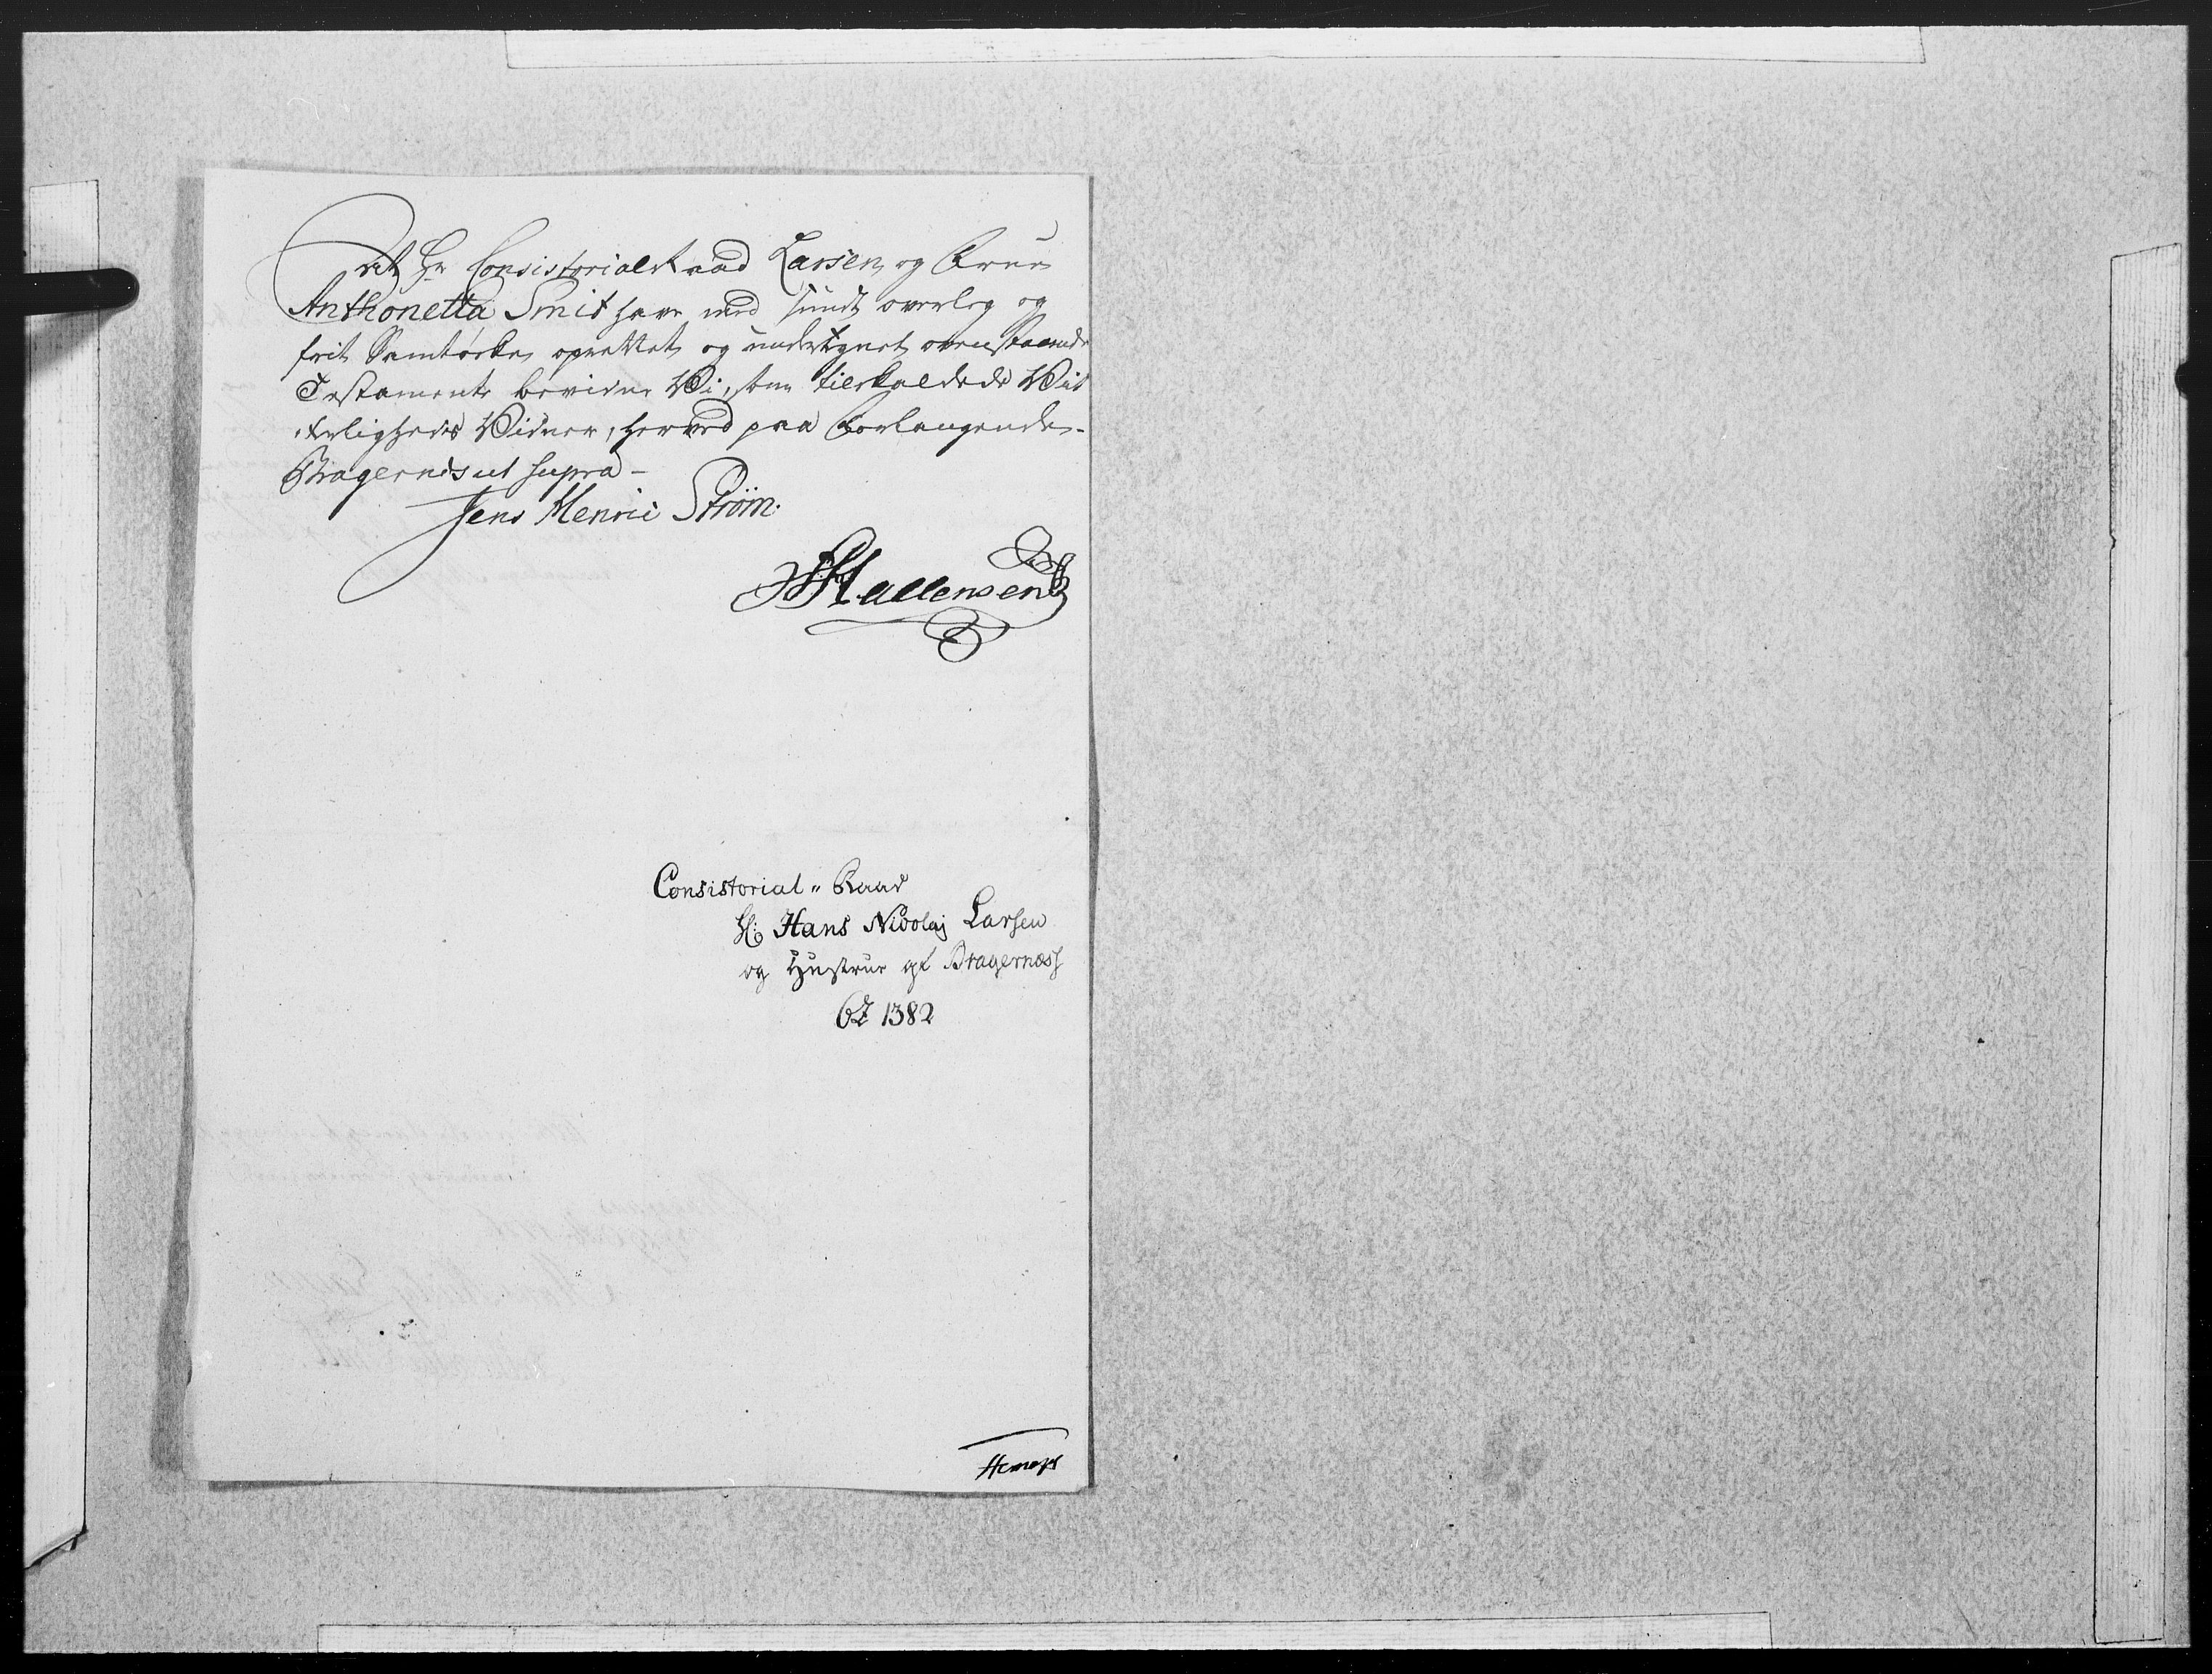 At Hr Consistorial Raad Larsen, og Frue
Anthonetta Smit have med sundt overleg og
frit Samtøcke, oprettet, og undertegnet, ovenstaaende
Testamente bevidne Vi, som tilkaldede Vit
terligheds Vidner, herved paa Forlangende.
Bragernes ut supra –
Jens Henric Strøm.
Hallensen
Consistorial " Raad
Hr: Hans Nicolaj Larsen
og Hustrue af Bragernæss
1382